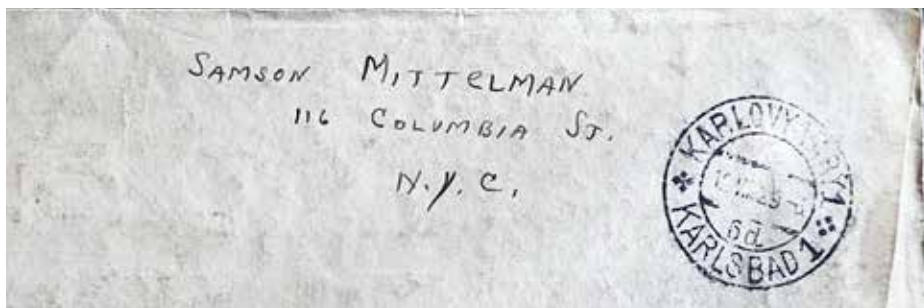 SAMSON MITTELMAN
116 COLUMBIA ST.
N.Y.C.
KARLOVY VARY 1
6d.
KARLSBAD 1